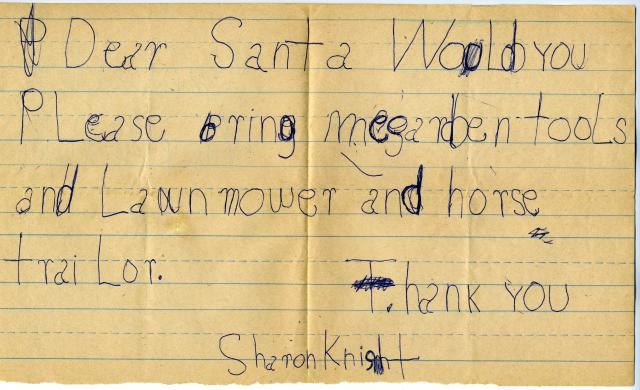 Dear Santa Would you
PLease bring me garden tooLs
and Lawn mower and horse
traiLor.
Thank you
Sharon Knight